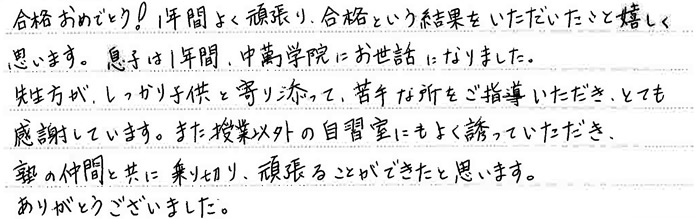 合格おめでとう!1年間よく頑張り、合格という結果をいただいたこと嬉しく
思います。息子は1年間、中萬学院にお世話になりました。
先生方が、しっかり子供と寄り添って、苦手な所をご指導いただき、とても
感謝しています。また授業以外の自習室にもよく誘っていただき、
塾の仲間と共に乗り切り、頑張ることができたと思います。
ありがとうございました。